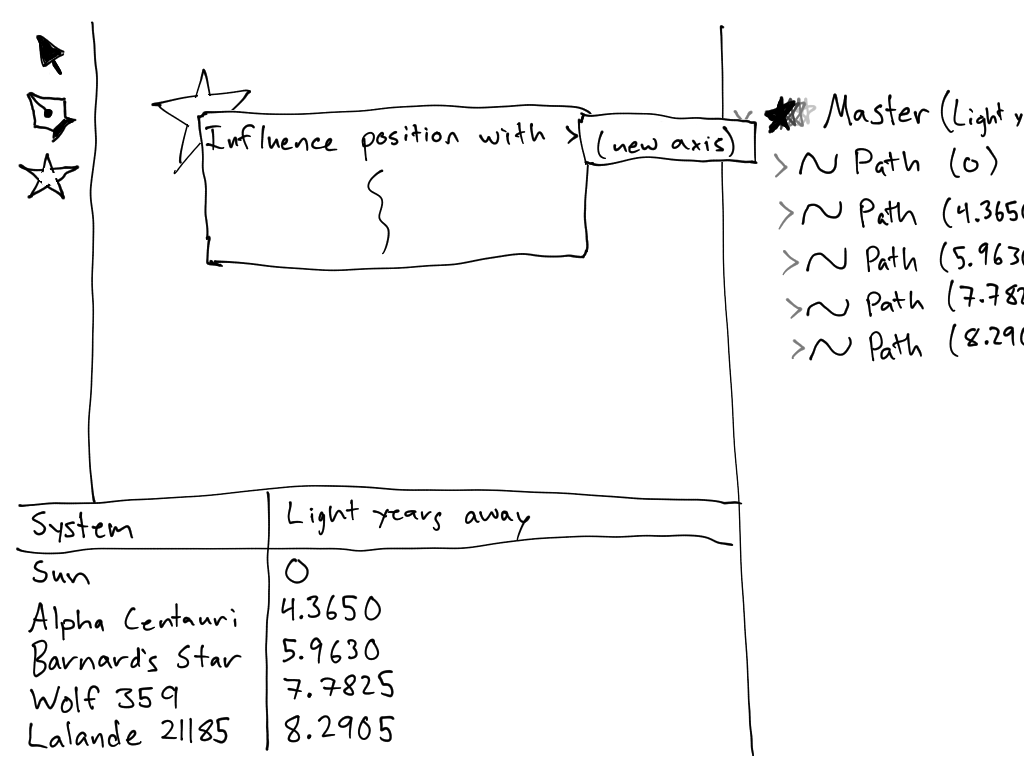 Influence position with >
(new axis)
Master (Light y
> Path (0)
> Path (4.3650
> Path (5.9630
> Path (7.782
> Path (8.290
System Light years away
Sun 0
Alpha Centauri 4.3650
Barnard's Star 5.9630
Wolf 359 7.7825
Lalande 21185 8.2905